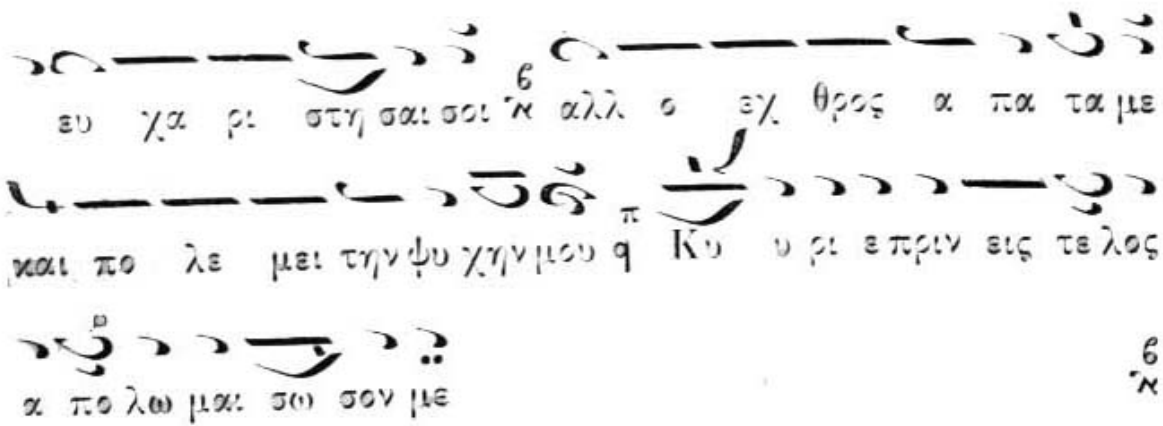 ευ χα ρι στη σαι σοι αλλ ο εχ θρος α πα τα με
και πο λε μει την ψυ χην μου π q Κυ υ ρι ε πριν εις τε λος
α πο λω μαι σω σον με